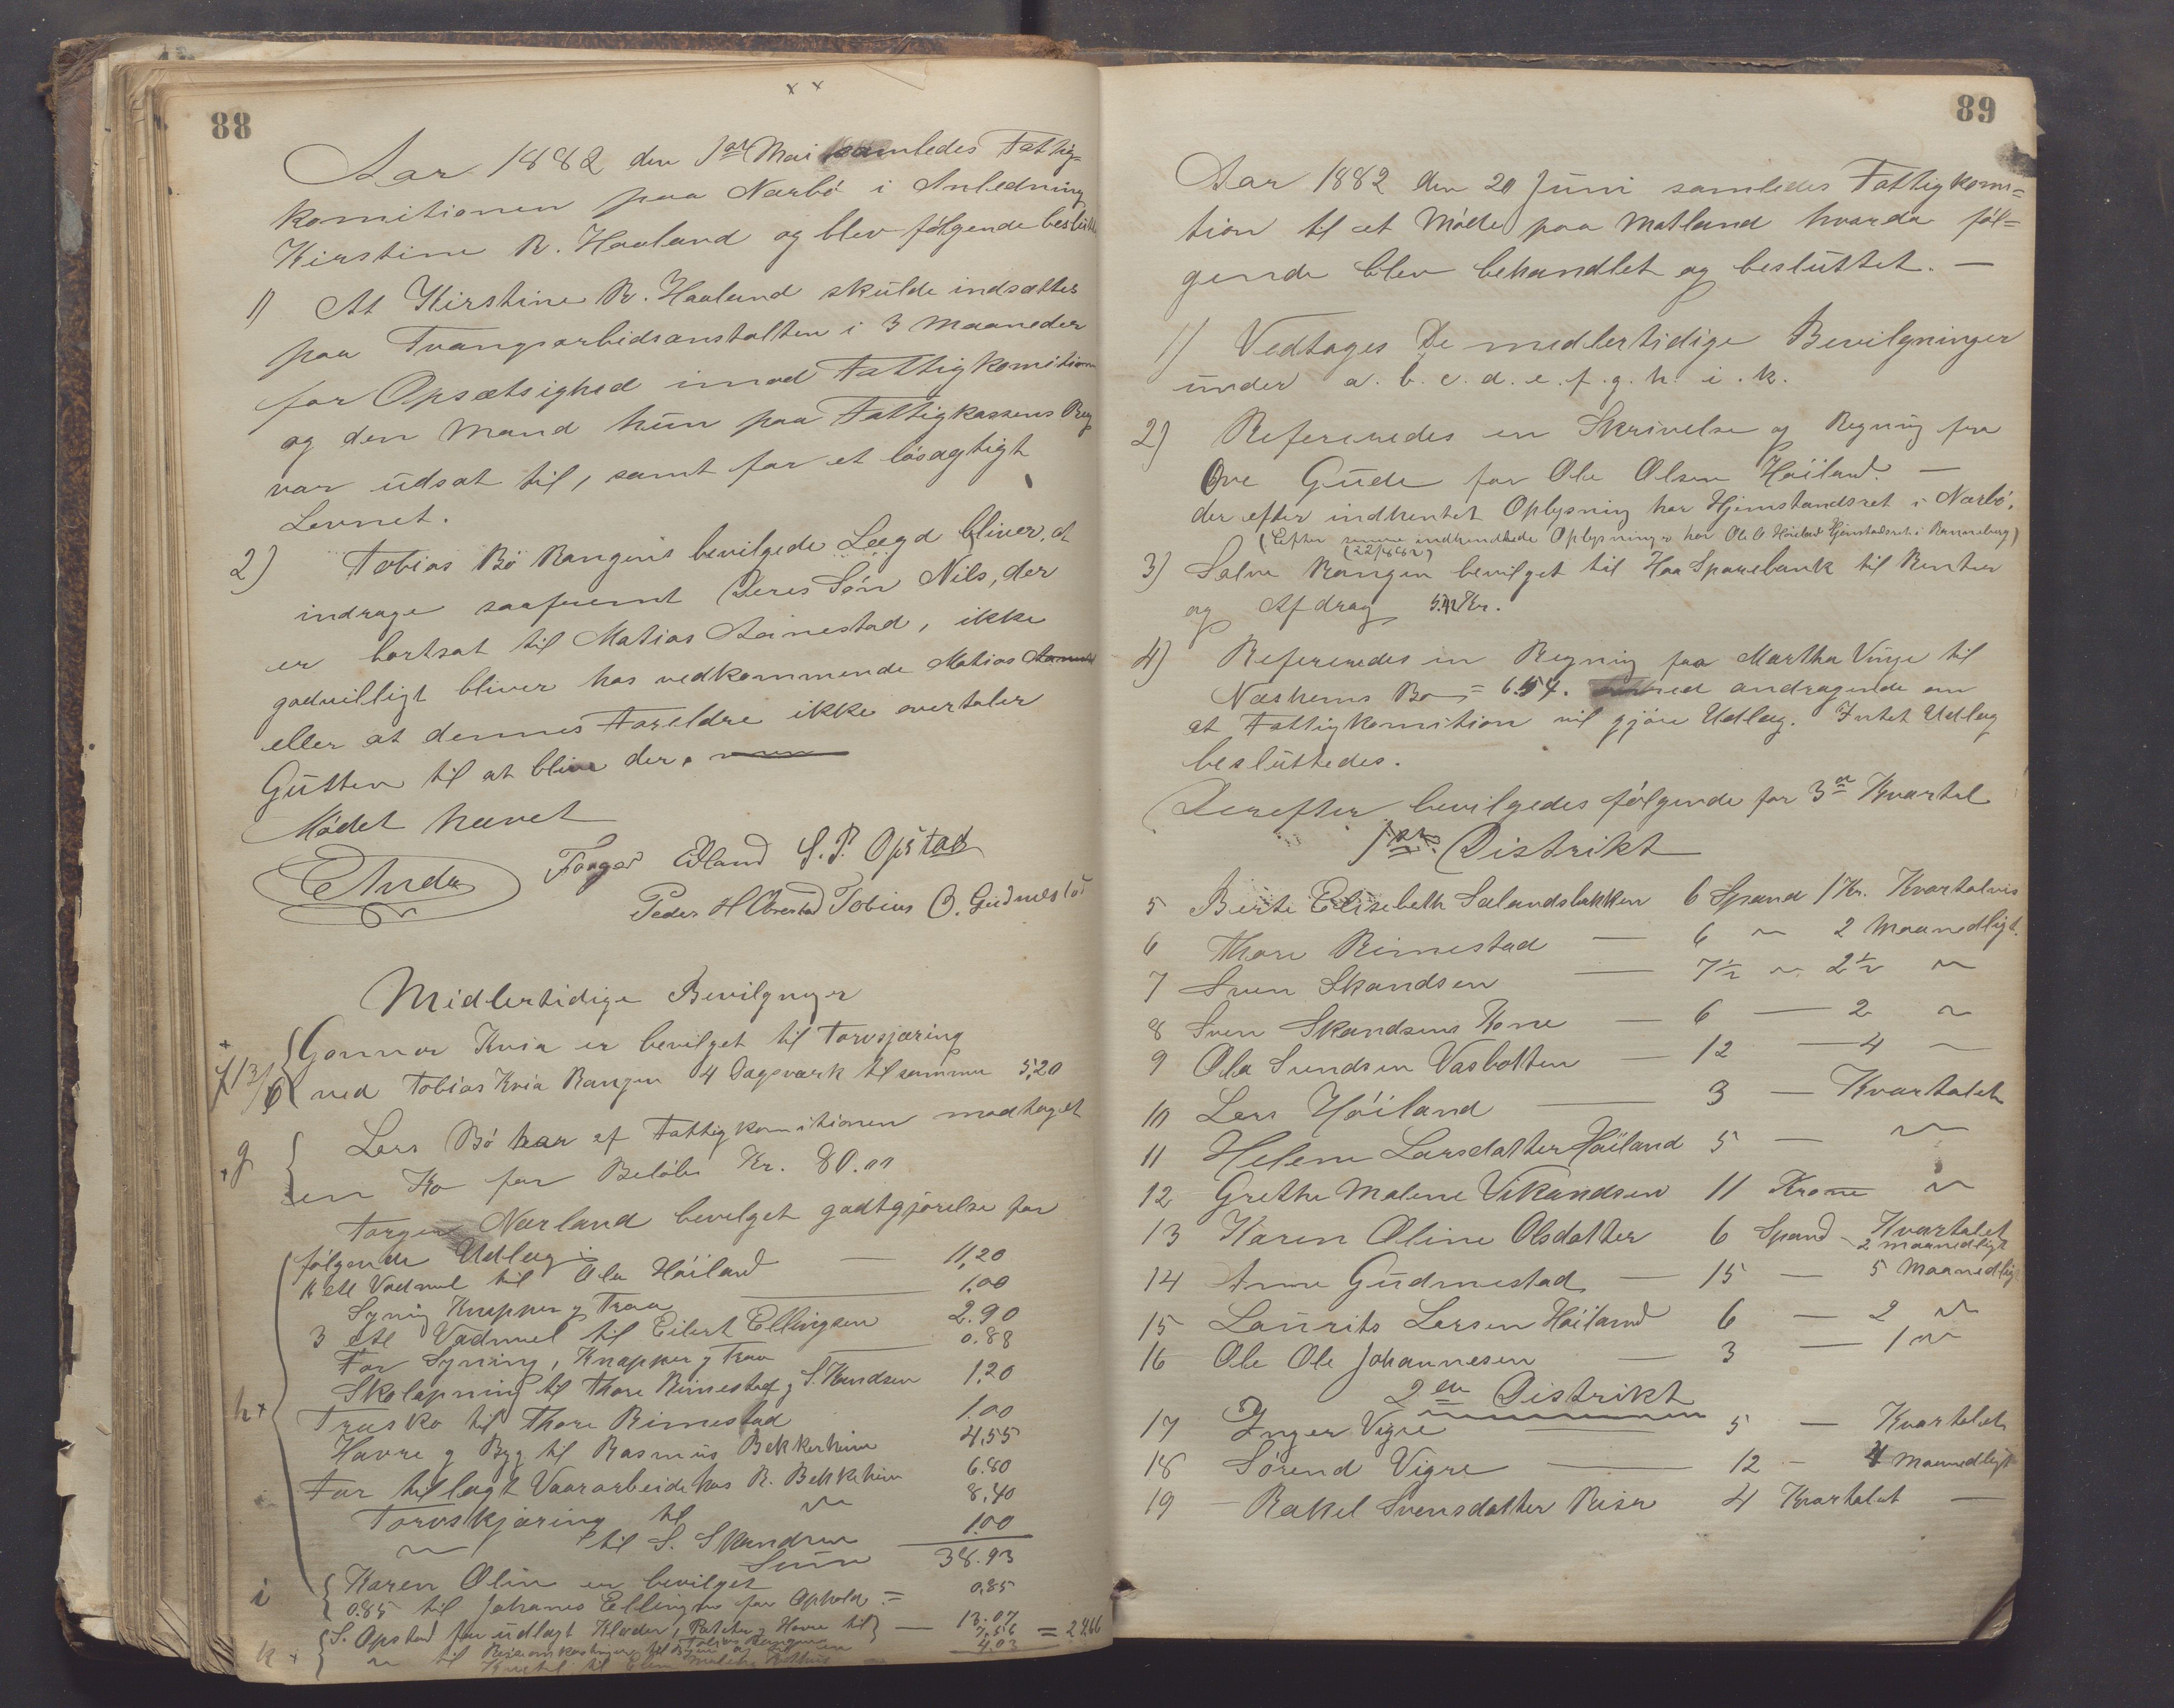 88
Aar 1882 den 1ste Mai samledes Fattig-
komitionen paa Nærbø i Anledning
Kirstine R. Haaland og blev følgende beslutt
1) At Kirstine R. Haaland skulde indsættes
paa Tvangsarbeidsanstalten i 3 Maaneder
for Opsætsighed imod Fattigkomitionen
og den Mand hun paa Fattigkassens Reg
var udsat til, samt for et løsagtigt
Levnet.
2) Tobias Bø Rangens bevilgede Lægd bliver at
indrage saafremt Deres Søn Nils, der
er bortsat til Matias Aanestad, ikke
godvilligt bliver hos vedkommende Matias
eller at dennes Forældre ikke overtaler
Gutten til at blive der.
Mødet hævet
Torger Edland S. P. Opstad
Peder H Obrestad Tobias O. Gudmestad
Midlertidige Bevilgnger
+ f 13/6 Gonnor Kvia er bevilget til Torvsjæring
ved Tobias Kvia Rangen 4 Dagsværk tilsammen 5,20
+ g Lars Bø har af Fattigkomitionen modtaget
en Ko for Beløbe Kr. 80.00
Torger Nærland bevilget godtgjørelse for
følgende Udlæg:
Vadmel til Ole Høiland — 11,20
Syning Knapper og Traa — 1.00
3 Vadmel til Eilert Ellingsen 2.90
For Syning, Knapper og Traa — 0.88
Skolapning til Thore Rimestad og S. Skandsen 1.20
h + Træsko til Thore Rimestad 1.00
Havre og Byg til Rasmus Bekkeheim 4,55
For tillagt Vaararbeide hos R. Bekkeheim 6.80
Torvskjæring til ~ 8,40
~ til S. Skandsen 1.00
Sum 38.93
i Karen Olin er bevilget
0.85 til Johanes Ellingsen for Ophold = 0,85
k + S. Opstad for udlagt Klæder, og Havre til — 13.07
~ til 7,56 = 24,66
4,03
89
Aar 1882 den 20 Juni samledes Fattigkomi=
tion til et Møde paa Motland hvorda føl=
gende blev behandlet og besluttet. —
1) Vedtages De medlertidige Bevilgninger
under a. b. c. d. e. f. g. h. i. k.
2) Refereredes en Skrivelse og Regning fra
Ove Gude for Ole Olsen Høiland. —
der efter indhentet Oplysning har Hjemstandsret i Nærbø.
(Efter senere indhendtede Oplysninger har Ole O Høiland Hjemstadsret i Ranneberg)
3) Salve Rangen bevilget til Haa Sparebank til Renter
og Afdrag 5.42 Kr.
4) Refereredes en Regning fra Martha Vinje til
Næshems Bo = 6.54. andragende om
at Fattigkomition vil gjøre Udlæg. Intet Udlæg
besluttedes.
Derefter bevilgedes følgende for 3die Kvartal
1ste Distrikt
5 Berte Elisebeth Salandsbakken 6 Spand 1 Kr. Kvartalvis
6 Thore Rimestad — 6 ~ 2 Maanedligt.
7 Sven Skandsen — 7½ ~ 2½ ~
8 Sven Skandsens Kone — 6 — 2 ~
9 Ole Svendsen Vasbotten — 12 — 4 ~
10 Lars Høiland — 3 — Kvartalet
11 Helene Larsdatter Høiland 5 — ~
12 Grethe Malene Vikandsen 11 Krone ~
13 Karen Oline Olsdatter 6 Spand - Kvartalet
2 maanedligt
14 Anne Gudmestad — 15 — 5 Maanedlig
15 Laurits Larsen Høiland 6 — 2 ~
16 Ole Ole Johannesen — 3 — 1 ~
2den Distrikt
17 Inger Vigre — 5 — Kvartalet
18 Sørend Vigre — 12 - 4 Maanedligt
19 — Rakel Svensdatter Risa 4 Kvartalet —